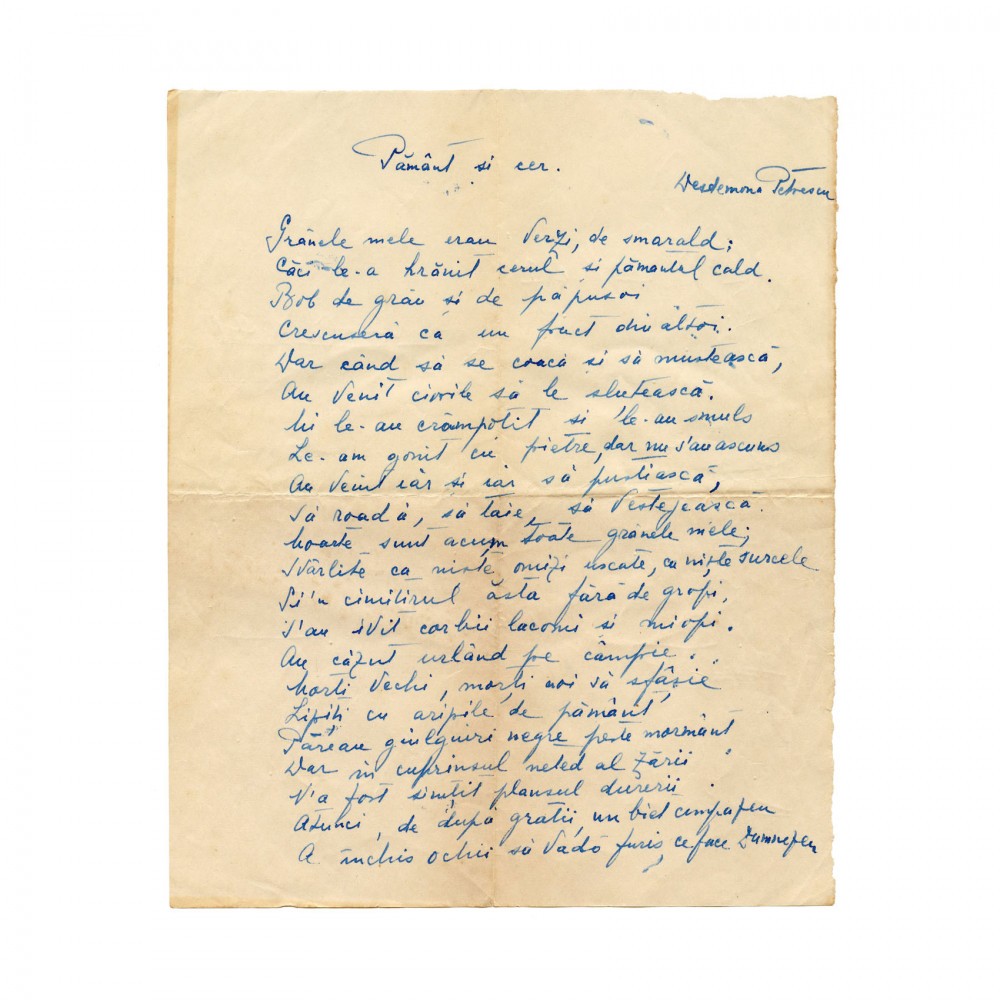 Pământ si cer.
Desdemona Petrescu
Grânele mele erau verzi, de smarald;
Căci le-a hrănit cerul si pământul cald.
Bob de grâu si de păpusoi
Crescuseră ca un fruct din altoi.
Dar când să se coacă si să mustească,
Au venit ciorile să le slutească.
Mi le-au crâmpotit si le-au smuls
Le-am gonit cu pietre, dar nu s'au ascuns
Au venit iar si iar să pustiască,
Să roadă, să taie, să vestejească.
Moarte sunt acum toate grânele mele;
Svârlite ca niste omizi uscate, ca niște surcele
Si'n cimitirul ăsta fără de gropi,
S'au ivit corbii lacomi si miopi.
Au căzut urlând pe câmpie.
Morti vechi, morți noi să sfâșie
Lipiti cu aripile de pământ,
Păreau giulgiuri negre peste mormânt
Dar în cuprinsul neted al zării
N'a fost simțit plânsul durerii.
Atunci, de după gratii, un biet
A închis ochii să vadă furis, ce face Dumnezeu